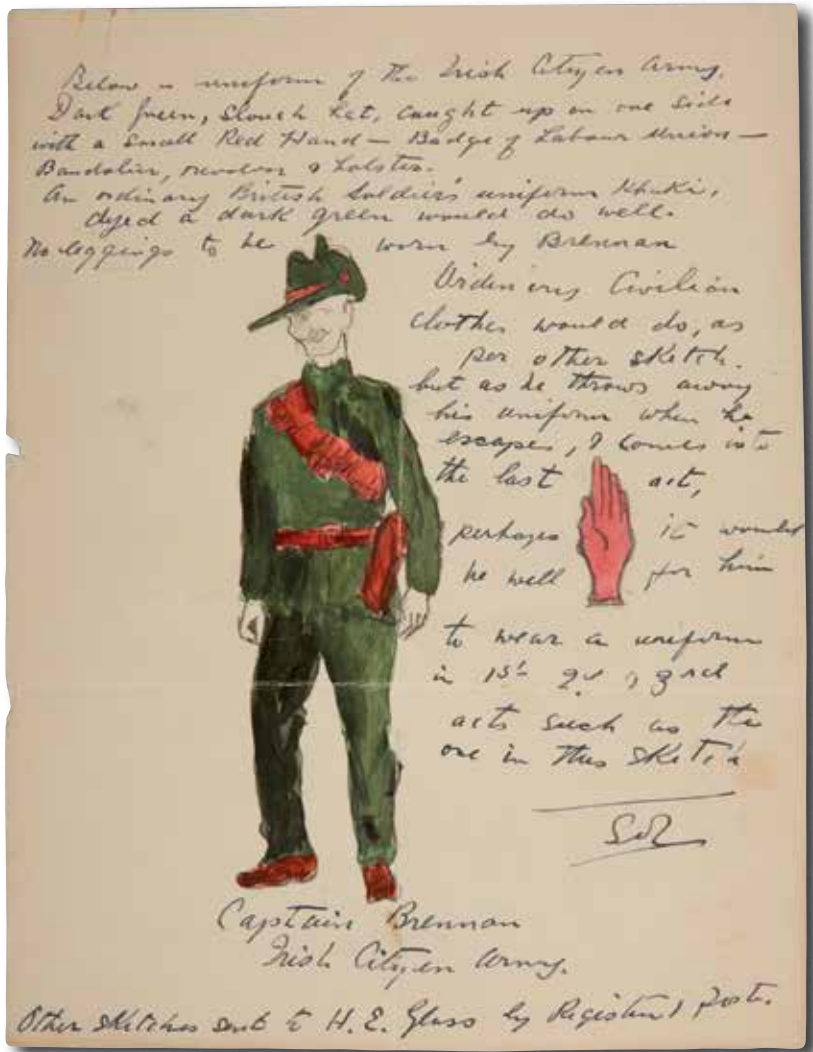 Below is uniform of the Irish Citizen Army.
Dark green, slouch hat, caught up on one side
with a small Red Hand — Badge of Labour Union —
Bandolier, revolver & holster.
An ordinary British Soldier's uniform Khaki,
dyed a dark green would do well.
No leggings to be worn by Brennan
Ordinary Civilian
clothes would do, as
per other sketch.
but as he throws away
his uniform when he
escapes, & comes into
the last act,
perhaps it would
be well for him
to wear a uniform
in 1st 2nd & 3rd
acts such as the
one in this sketch
Captain Brennan
Irish Citizen Army.
Other sketches sent to H. E. by Registered Post.